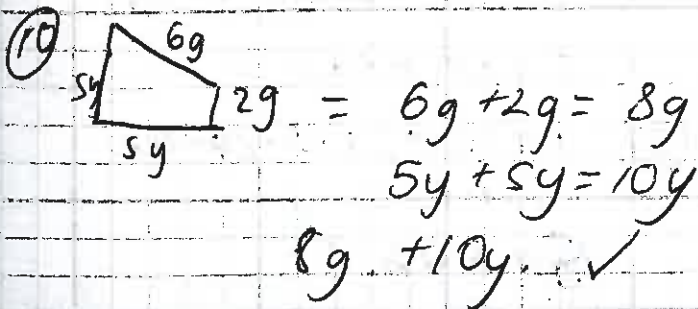 10
6g
5y
2g = 6g +2g = 8g
5y
5y + 5y = 10y
8g +10y. ✓